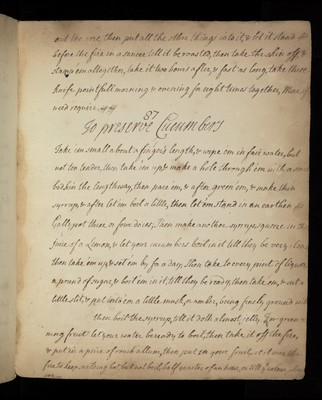 out the core, then put all the other things into it, & let it stand
before the fire in a sawcer till it be roasted, then take the skin off, &
stamp em altogether, take it two hours after, & fast as long, take three
knife point full morning & evening for eight times together, More if
need require
87
To preserve Cucumbers
Take em small about a finger's length, & wipe em in fair water, but
not too tender, then take em up & make a hole through em with a
bodkin the lengthway, then pare em, & after green em, & make then
syrrup, & after let em boil a little, then let em stand in an earthen
Gally pot three, or four daies, Then make another syrrup, squeeze in the
juice of a Lemon, & let your cucumbers boil in it till they be very
then take em up & set em by for a day, Then take to every point of liquor
a pound of sugar, & boil em in it, till they be ready, then take em, & cut a
little slit, & put into em a little musk, or amber, being finely ground
then boil the syrrup, till it doth almost jelly, For green
ning fruit let your water be ready to boil, then take it off the fire,
& put in a piece of roach allum, then put in your fruit, set it over the
fire to keep scalding hot but not boil, half quarter of an hour, or till